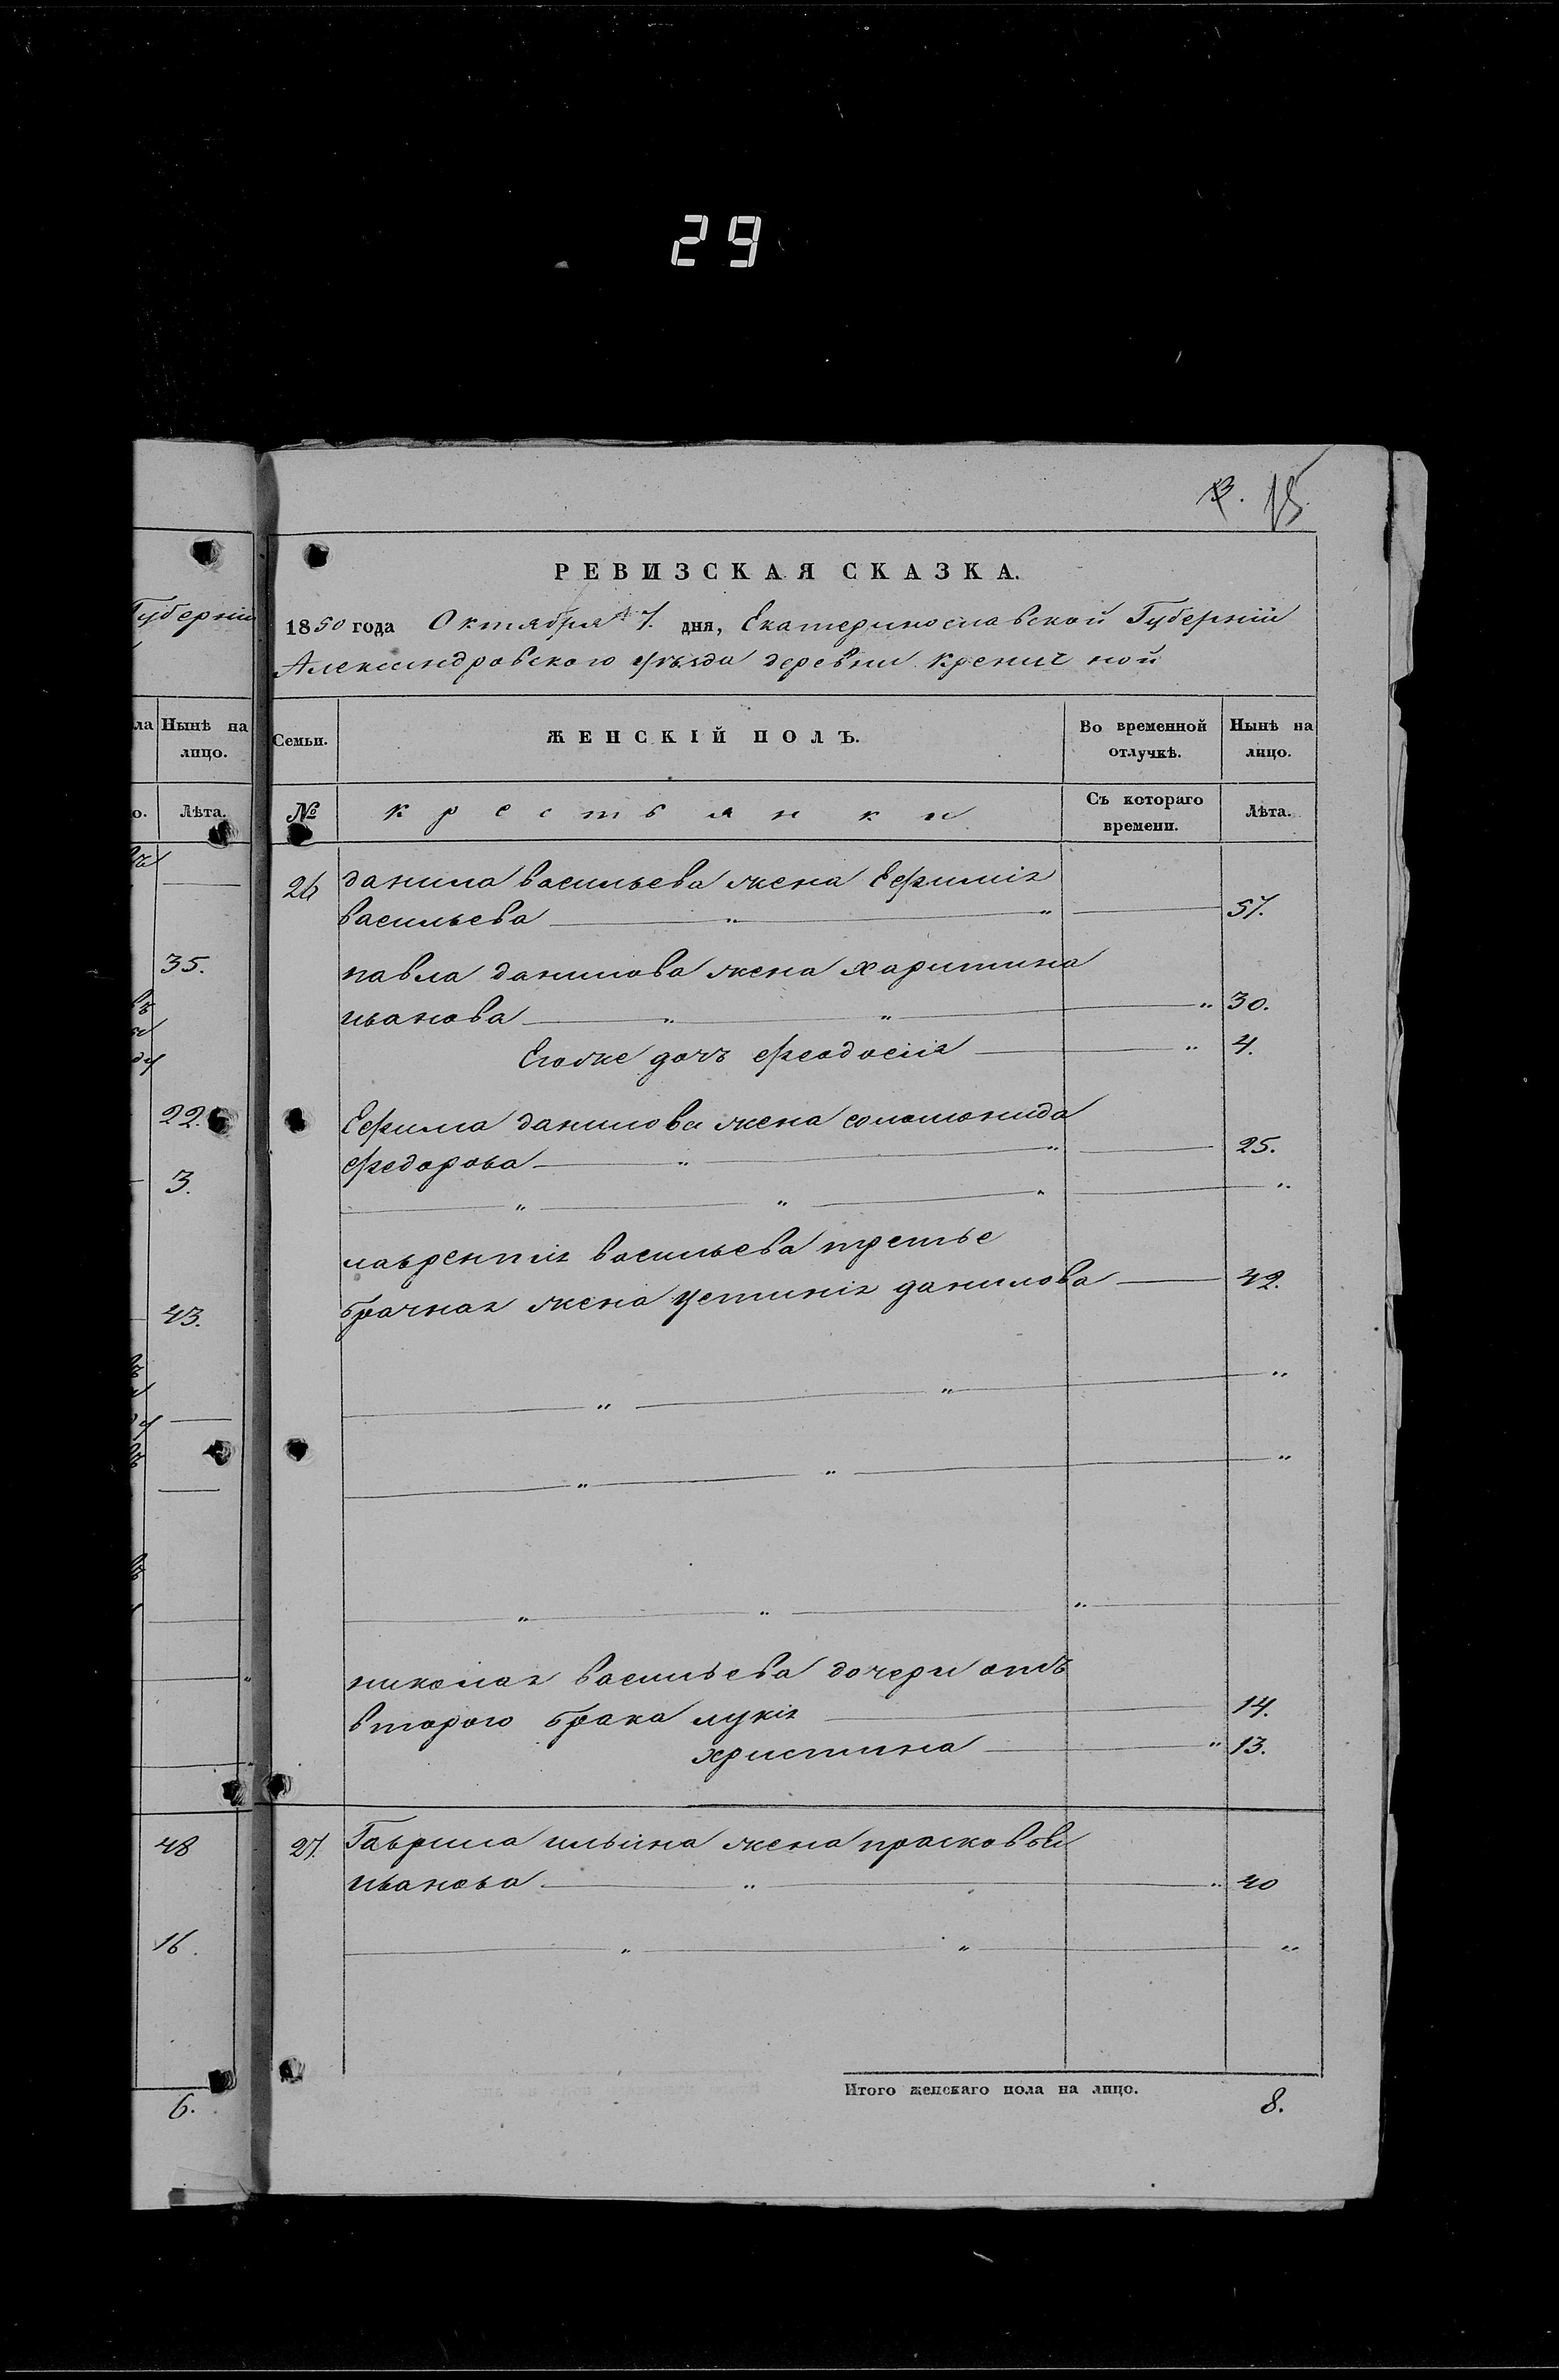 29
13. 15
РЕВИЗСКАЯ СКАЗКА.
Губерніи
1850 года Октября 7. дня, Екатеринославской Губерніи
Александровского уѣзда деревни Кремнчной
ла Нынѣ на лицо.
Семьи. ЖЕНСКІЙ ПОЛЪ. Во временной отлучкѣ. Нынѣ на лицо.
о. Лѣта.
№ крестьянки Съ котораго времени. Лѣта.
26 данила васильева жена Ефимія
васильева — " — " — 57.
35.
павла данилова жена харитина
иванова — " — " — " 30.
Егоже дочь феодосія — " 4.
22.
Ефима данилова жена соломонида
федорова — " — " — 25.
3.
— " — " — " — "
лаврентія васильева третье
брачная жена устинія данилова — 42.
43.
— " — " — "
— " — " — "
— " — " — " —
николая васильева дочери отъ
второго брака лукія — 14.
христина — " 13.
48
27. Гаврила ильина жена прасковья
иванова — " — " 40
16.
— " — " — "
Итого женскаго пола на лицо. 8.
6.